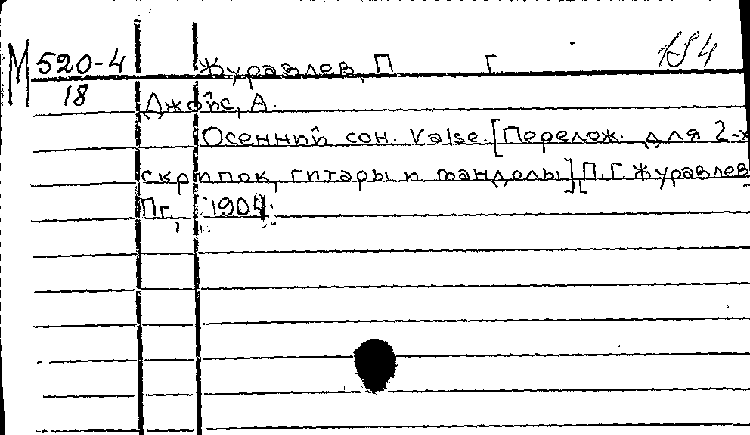 М 520-4 Журавлев, П Г. 184
18
Джойс, А.
Осенний сон. Valse. [Перелож. для 2-х
скрипок, гитары и мандолы] [П.Г. Журавлев
Пг., 1904.